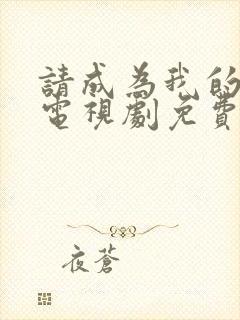 請成為我的
電視劇免費
夜蒼